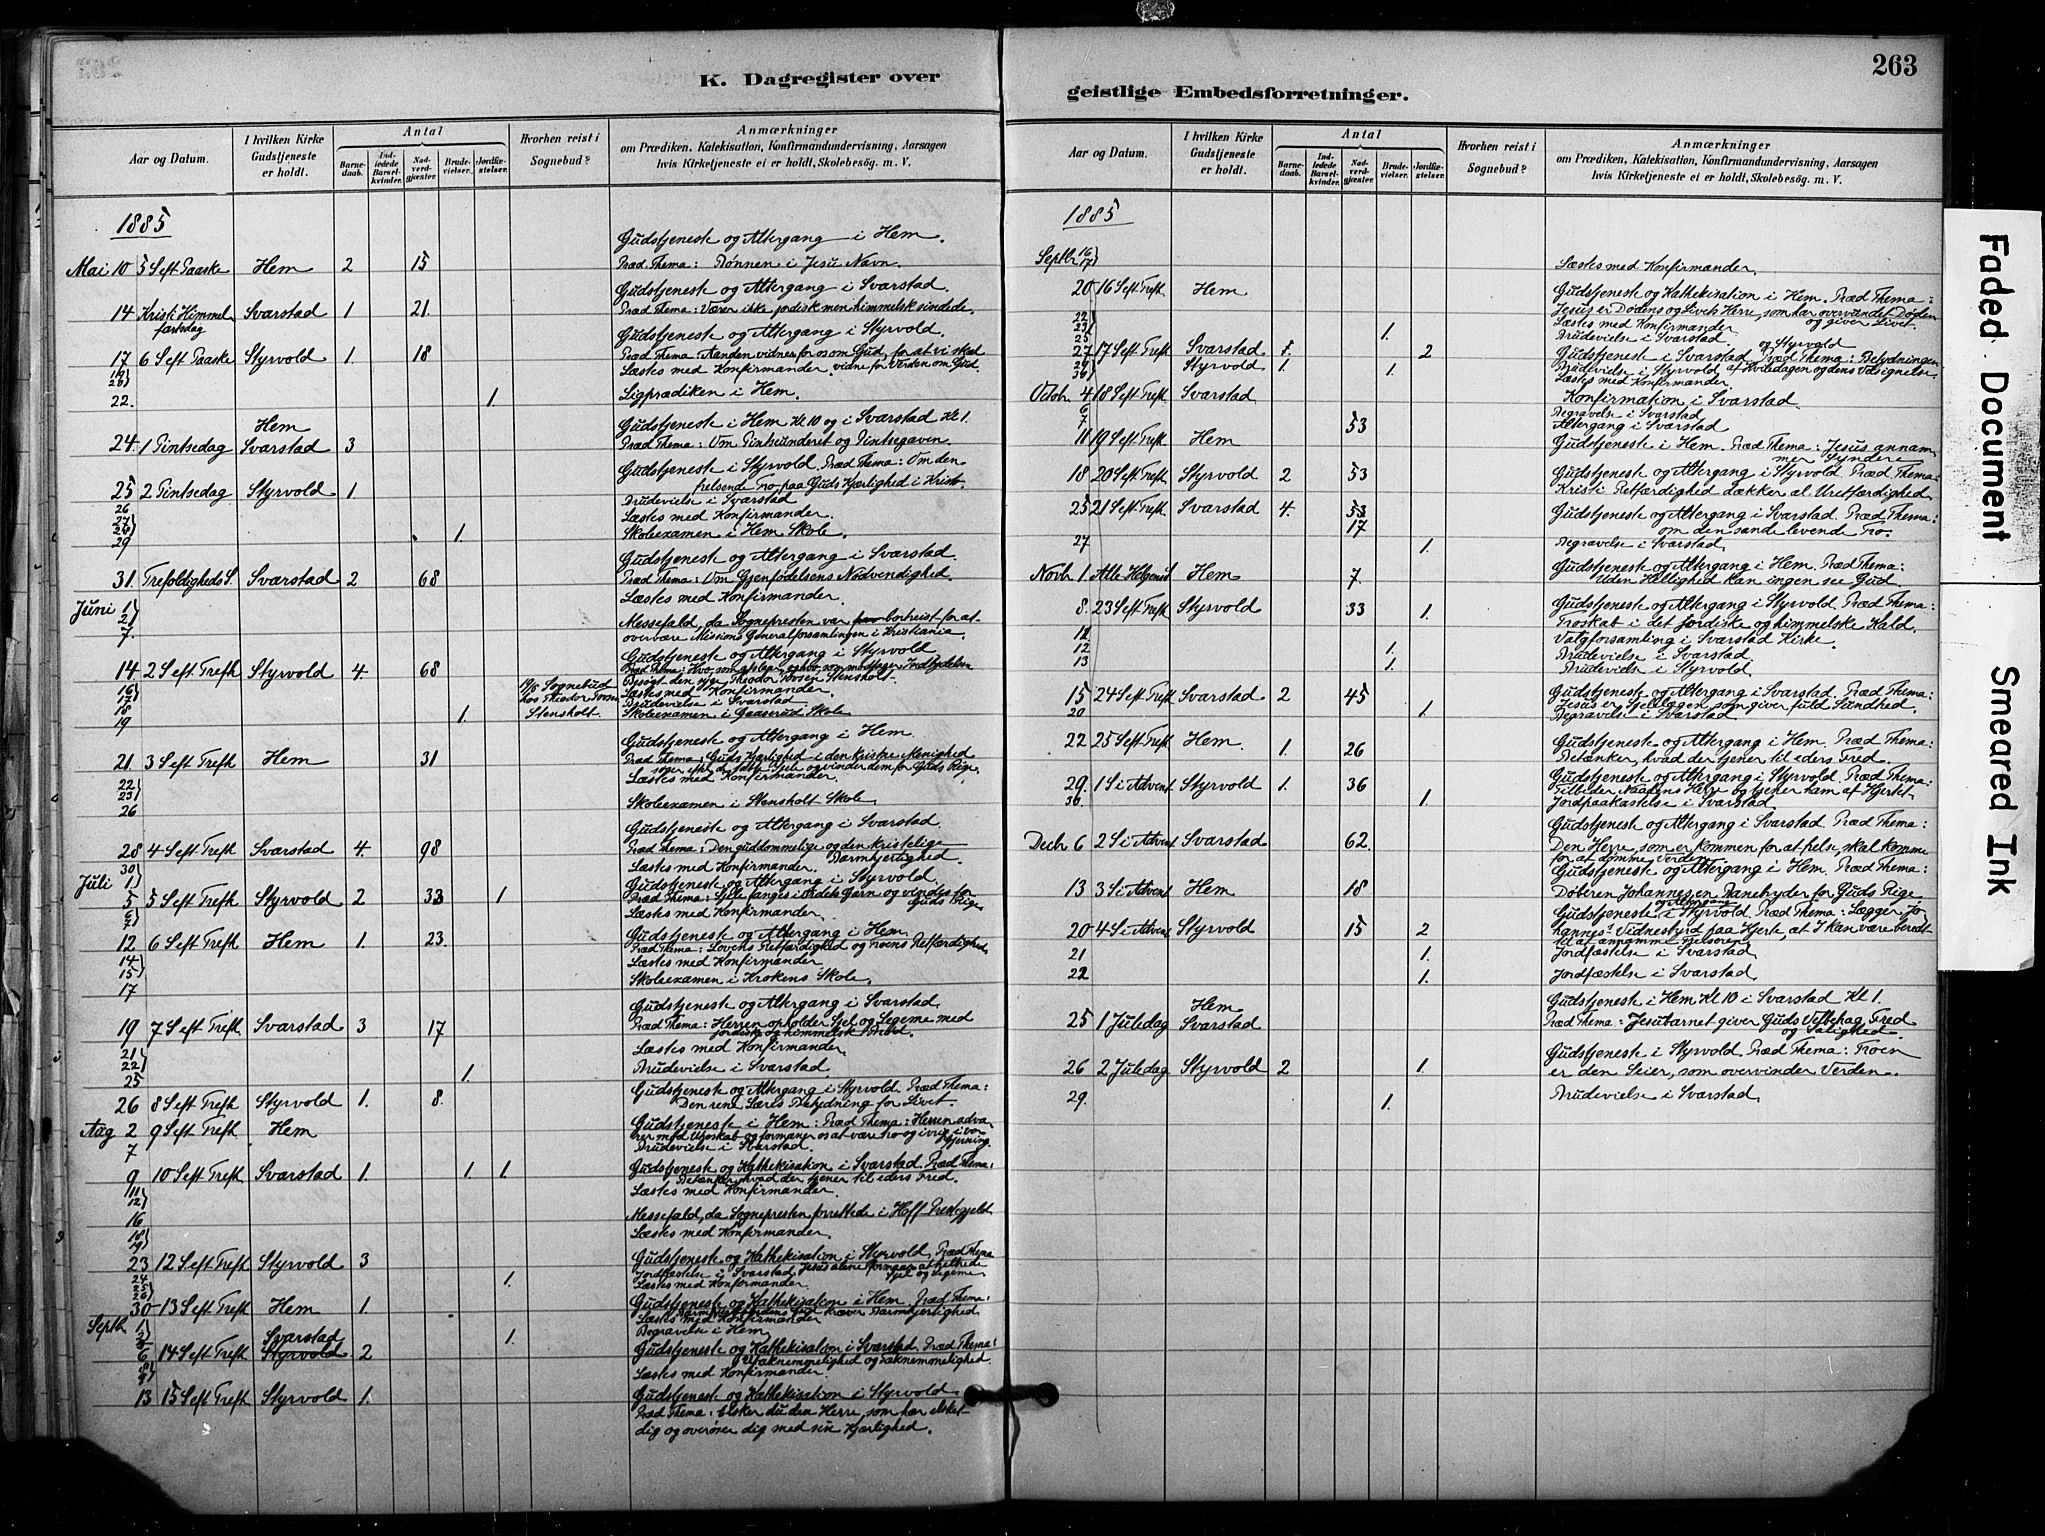 K. Dagregister over
Aar og Datum.
I hvilken Kirke Gudstjeneste er holdt.
Antal
Barnedaab.
Indledede Barselkvinder.
Nadverdgjæster.
Brudevielser.
Jordfæstelser.
Hvorhen reist i Sognebud?
Anmærkninger
om Prædiken, Katekisation, Konfirmandundervisning, Aarsagen
hvis Kirketjeneste ei er holdt, Skolebesøg. m. V.
1885
Gudstjeneste og Altergang i Hem.
Mai 10 5 S eft Paaske Hem 2 15 Præd. Thema: Bønnen i Jesu Navn.
Gudstjeneste og Altergang i Svarstad.
14 Kristi Himmelfartsdag Svarstad 1 21 Præd Thema: Værer ikke jordisk men himmelsk sindede.
Gudstjeneste og Altergang i Styrvold.
17 6 S eft Paaske Styrvold 1. 18 Præd Thema Aanden vidner for os om Gud, for at vi skal vidne for Verden om Gud.
19 20 Læstes med Konfirmander.
22. 1. Ligprædiken i Hem.
Hem Gudstjeneste i Hem Kl 10 og i Svarstad Kl 1.
24. 1 Pintsedag Svarstad 3 Præd Thema: Om Pintseunderet og Pintsegaven.
Gudstjeneste i Styrvold. Præd Thema: Om den
25 2 Pintsedag Styrvold 1 frelsende Tro paa Guds Kjærlighed i Kristo.
26 Brudevielse i Svarstad
27 28 Læstes med Konfirmander.
29 1. Skoleexamen i Hem Skole.
Gudstjeneste og Altergang i Svarstad.
31. Trefoldigheds S. Svarstad 2 68 Præd Thema: Om Gjenfødelsens Nødvendighed.
Juni 1 2 Læstes med Konfirmander.
7 Messefald, da Sognepresten var borteist for at
overvære Missions Generalforsamlingen i Kristiania
Gudstjeneste og Altergang i Styrvold
14 2 S eft Trefh Styrvold 4 68
19/6 Sognebud hos Theodor Stensholt. Besøgt den syge Theodor Stensholt.
16 17 Læstes med Konfirmander.
18 Brudevielse i Svarstad
19 1. Skoleexamen i Gaaserud Skole
Gudstjeneste og Altergang i Hem
21 3 S eft Trefh Hem 31 Præd Thema: Guds Kjærlighed i den kristne Menighed
søger efter d. tabte Sjæle og vinder dem for Guds Rige.
22 23 Læstes med Konfirmander.
26 Skoleexamen i Stensholt Skole
Gudstjeneste og Altergang i Svarstad.
28 4 S eft Trefh Svarstad 4. 98 Præd Thema: Den guddommelige og den kristelige Barmhjertighed.
30 Juli 1 Læstes med Konfirmander
Gudstjeneste og Altergang i Styrvold.
5 5 S eft Trefh Styrvold 2 33 1 Præd Thema: Sjæle fanges i Ordets Garn og vindes for Guds Rige
6 7 Læstes med Konfirmander.
Gudstjeneste og Altergang i Hem.
12 6 S eft Trefh Hem 1. 23 Præd Thema: Lovens Retfærdighed og Troens Retfærdighed
14 15 Læstes med Konfirmander
17 Skoleexamen i Krokens Skole.
Gudstjeneste og Altergang i Svarstad
19 7 S eft Trefh Svarstad 3 17 Præd Thema: Herren opholder Sjel og Legeme med
jordisk og himmelsk Brød.
21 22 Læstes med Konfirmander
25 1. Brudevielse i Svarstad
Gudstjeneste og Altergang i Styrvold. Præd Thema:
26 8 S eft Trefh Styrvold 1. 8. Den rene Læres Betydning for Livet.
Aug 2 9 S eft Trefh Hem Gudstjeneste i Hem: Præd Thema: Herren advarer mod Utroskab og formaner os at være tro og ivrig i vor Gjerning.
7 Brudevielse i Svarstad.
9 10 S eft Trefh Svarstad 1. 1. 1. Gudstjeneste og Kathekisation i Svarstad. Præd Thema:
Betænker hvad der tjener til eders Fred.
11 12 Læstes med Konfirmander.
16 Messefald, da Sognepresten forrettede i Hoff Prestegjeld
18 19 Læstes med Konfirmander.
23 12 S eft Trefh Styrvold 3 Gudstjeneste og Kathekisation i Styrvold. Præd Thema
Jesus alene formaar at helbrede Sjel og Legeme
24 1. Jordfæstelse i Svarstad
25 26 Læstes med Konfirmander
30 13 S eft Trefh Hem 1. Gudstjeneste og Kathekisation i Hem. Præd Thema:
Septbr 1 2 Læstes med Konfirmander
1. Begravelse i Hem
6 14 S eft Trefh Svarstad Styrvold 2 Gudstjeneste og Kathekisation i Svarstad. Præd Thema:
Utaknemmelighed og Taknemmelighed.
8 9 Læstes med Konfirmander.
13 15 S eft Trefh Styrvold 1. Gudstjeneste og Kathekisation i Styrvold.
Præd Thema: Elsker du den Herre, som har elsket
dig og overøser dig med sin Kjærlighed.
263
geistlige Embedsforretninger.
Aar og Datum.
I hvilken Kirke Gudstjeneste er holdt.
Antal
Barnedaab.
Indledede Barselkvinder.
Nadverdgjæster.
Brudevielser.
Jordfæstelser.
Hvorhen reist i Sognebud?
Anmærkninger
om Prædiken, Katekisation, Konfirmandundervisning, Aarsagen
hvis Kirketjeneste ei er holdt, Skolebesøg. m. V.
1885
Septbr 16 17 Læstes med Konfirmander.
20 16 S eft Trefh Hem Gudstjeneste og Kathekisation i Hem. Præd Thema:
Jesus er Dødens og Livets Herre, som har overvundet Døden og giver Livet.
22 23 Læstes med Konfirmander
25 1. Brudevielse i Svarstad.
27 17 S eft Trefh Svarstad 1. 2 Gudstjeneste i Svarstad og Styrvold Præd Thema: Betydningen af Hviledagen og dens Velsignelse.
Styrvold 1. 1. Brudevielse i Styrvold
29 30 Læstes med Konfirmander.
Octob. 4 18 S eft Trefh. Svarstad Konfirmation i Svarstad.
6 Begravelse i Svarstad
7 53 Altergang i Svarstad
11 19 S eft Trefh Hem Gudstjeneste i Hem. Præd Thema: Jesus annammer Syndere
18 20 S eft Trefh Styrvold 2 53 Gudstjeneste og Altergang i Styrvold Præd Thema:
Kristi Retfærdighed dækker al Uretfærdighed
25 21 S eft Trefh Svarstad 4. 53 17 Gudstjeneste og Altergang i Svarstad. Præd Thema:
om den sande levende Tro.
27 1. Begravelse i Svarstad
Novbr 1 Alle Helgensd Hem 7. Gudstjeneste og Altergang i Hem. Præd Thema:
Uden Hellighed kan ingen see Gud
8. 23 S eft Trefh Styrvold 33 1. Gudstjeneste og Altergang i Styrvold Præd Thema:
Troskab i det jordiske og himmelske Kald.
11. Valgforsamling i Svarstad Kirke.
12 1. Brudevielse i Svarstad
13 1. Brudevielse i Styrvold
15 24 S eft Trefh Svarstad 2 45 Gudstjeneste og Altergang i Svarstad. Præd Thema:
Jesus er Sjælelægen som giver fuld Sundhed.
20 1. Begravelse i Svarstad
22 25 S eft Trefh Hem 1. 26 Gudstjeneste og Altergang i Hem. Præd Thema:
Betænker, hvad der tjener til eders Fred.
29. 1 S i Advent Styrvold 1. 36 Gudstjeneste og Altergang i Styrvold. Præd Thema:
Tilbeder Naadens Herre og tjener ham af Hjertet
30 1. Jordpaakastelse i Svarstad
Gudstjeneste og Altergang i Svarstad. Præd Thema:
Decbr 6 2 S i Advent Svarstad 62. Den Herre, som er kommen for at frelse, skal komme
for at dømme Verden
Gudstjeneste og Altergang i Hem. Præd Thema:
13 3 S i Advent Hem 18 Døberen Johannes en Banebryder for Guds Rige.
Gudstjeneste og Altergang i Styrvold. Præd Thema: Lægger Jo
20 4 S i Advent Styrvold 15 2 hannes' Vidnesbyrd paa Hjerte, at I kan være beredt
til at annamme Frelseren
21 1. Jordfæstelse i Svarstad
22 1. Jordfæstelse i Svarstad
Hem Gudstjeneste i Hem Kl 10 i Svarstad Kl 1.
25 1 Juledag Svarstad Præd Thema: Jesubarnet giver Guds Velbehag, Fred og Salighed.
Gudstjeneste i Styrvold. Præd Thema: Troen
26 2 Juledag Styrvold 2 1. er den Seier, som overvinder Verden.
29. 1. Brudevielse i Svarstad.
Faded Document
Smeared Ink